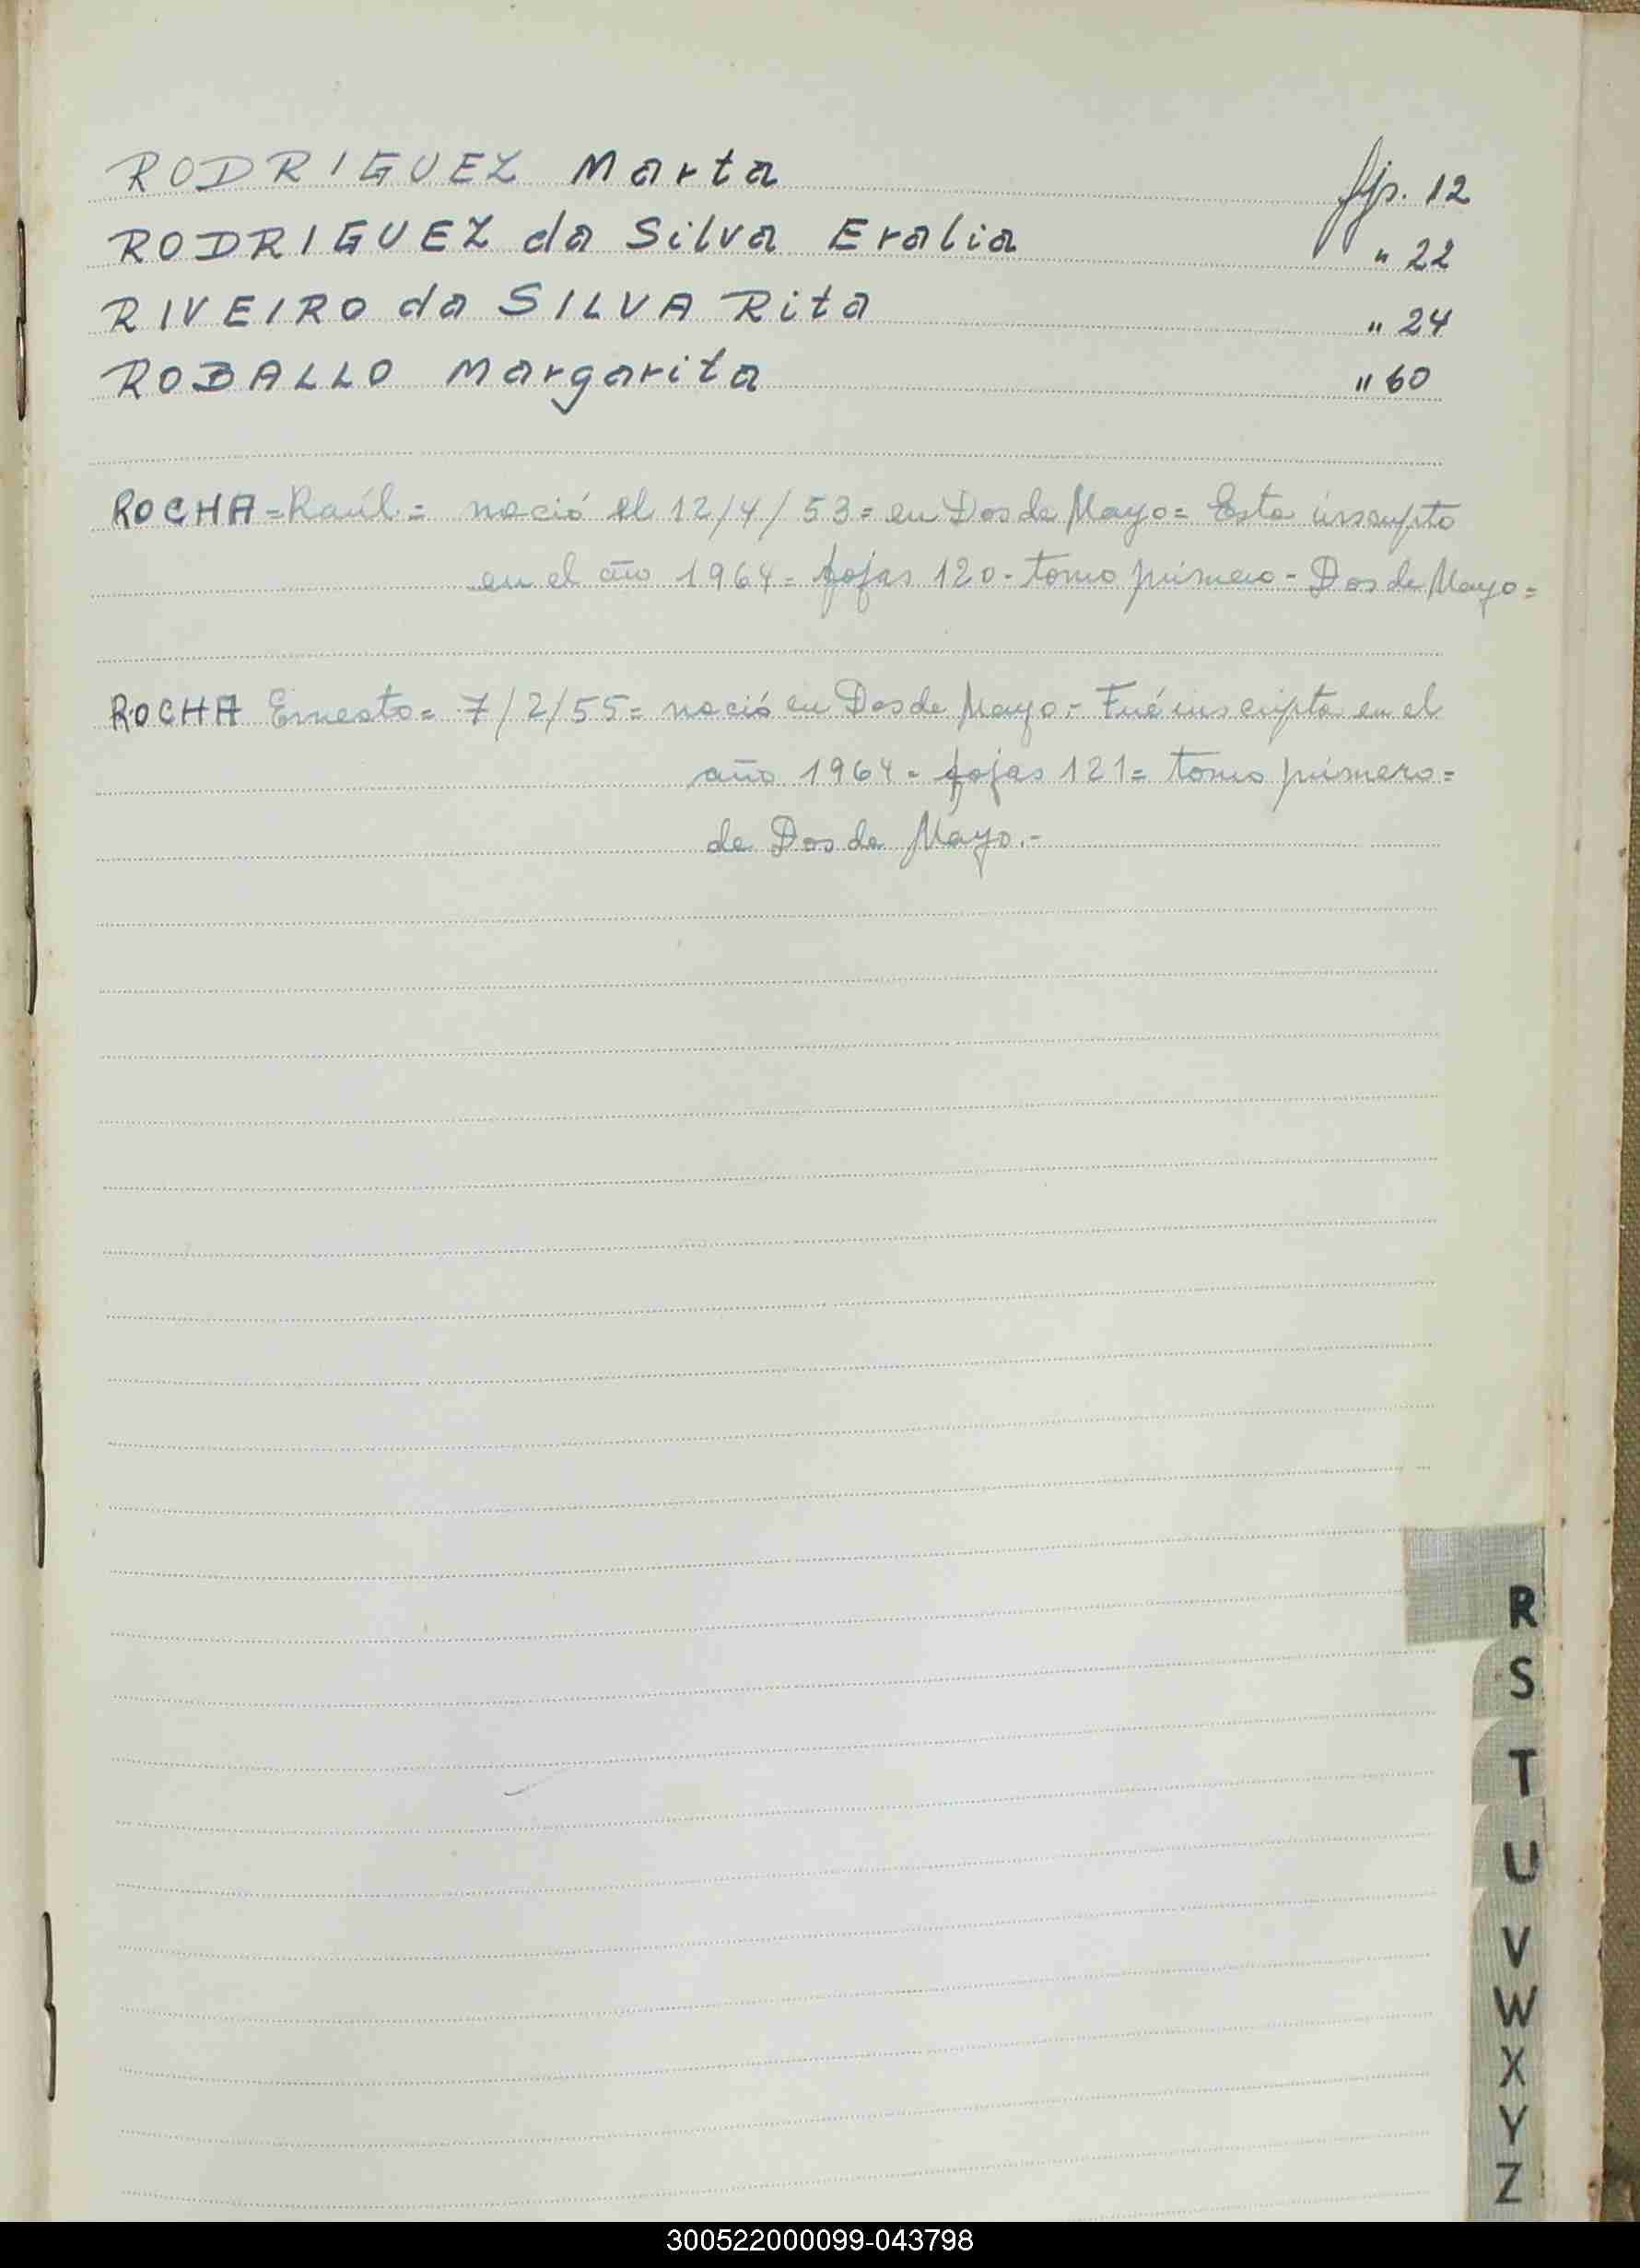 RODRIGUEZ Marta fjs. 12
RODRIGUEZ da Silva Eralia " 22
RIVEIRO da SILVA Rita " 24
ROBALLO Margarita " 60
ROCHA = Raúl = nació el 12/4/53 = en Dos de Mayo = Esta inscripto
en el año 1964 = fojas 120 - tomo primero - Dos de Mayo =
ROCHA Ernesto = 7/2/55 = nació en Dos de Mayo.- Fué inscripto en el
año 1964 = fojas 121 = tomo primero =
de Dos de Mayo.-
R
S
T
U
V
W
X
Y
Z
300522000099-043798